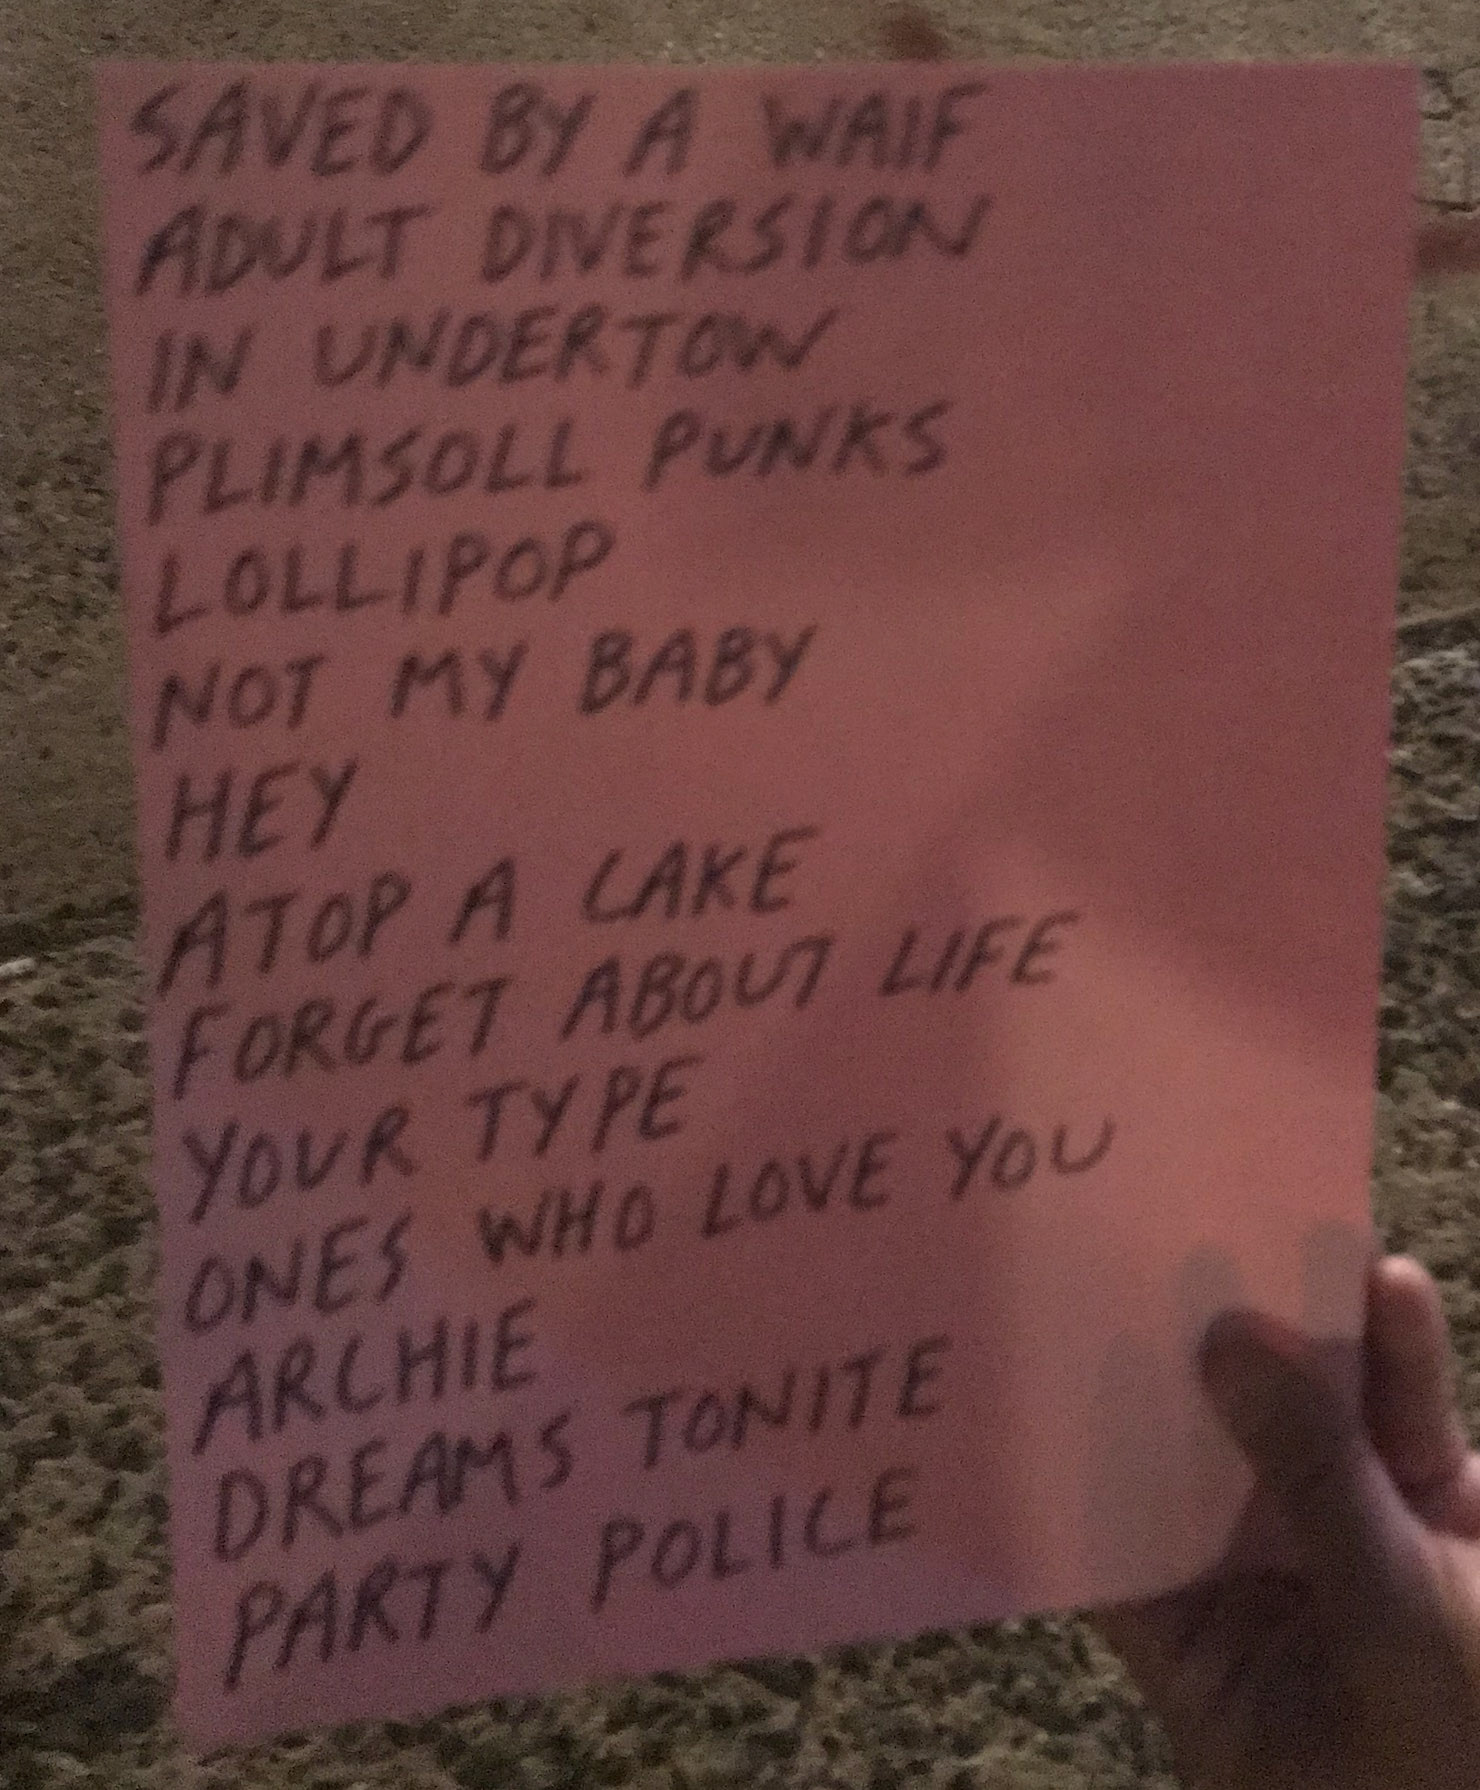 SAVED BY A WAIF
ADULT DIVERSION
IN UNDERTOW
PLIMSOLL PUNKS
LOLLIPOP
NOT MY BABY
HEY
ATOP A CAKE
FORGET ABOUT LIFE
YOUR TYPE
ONES WHO LOVE YOU
ARCHIE
DREAMS TONITE
PARTY POLICE